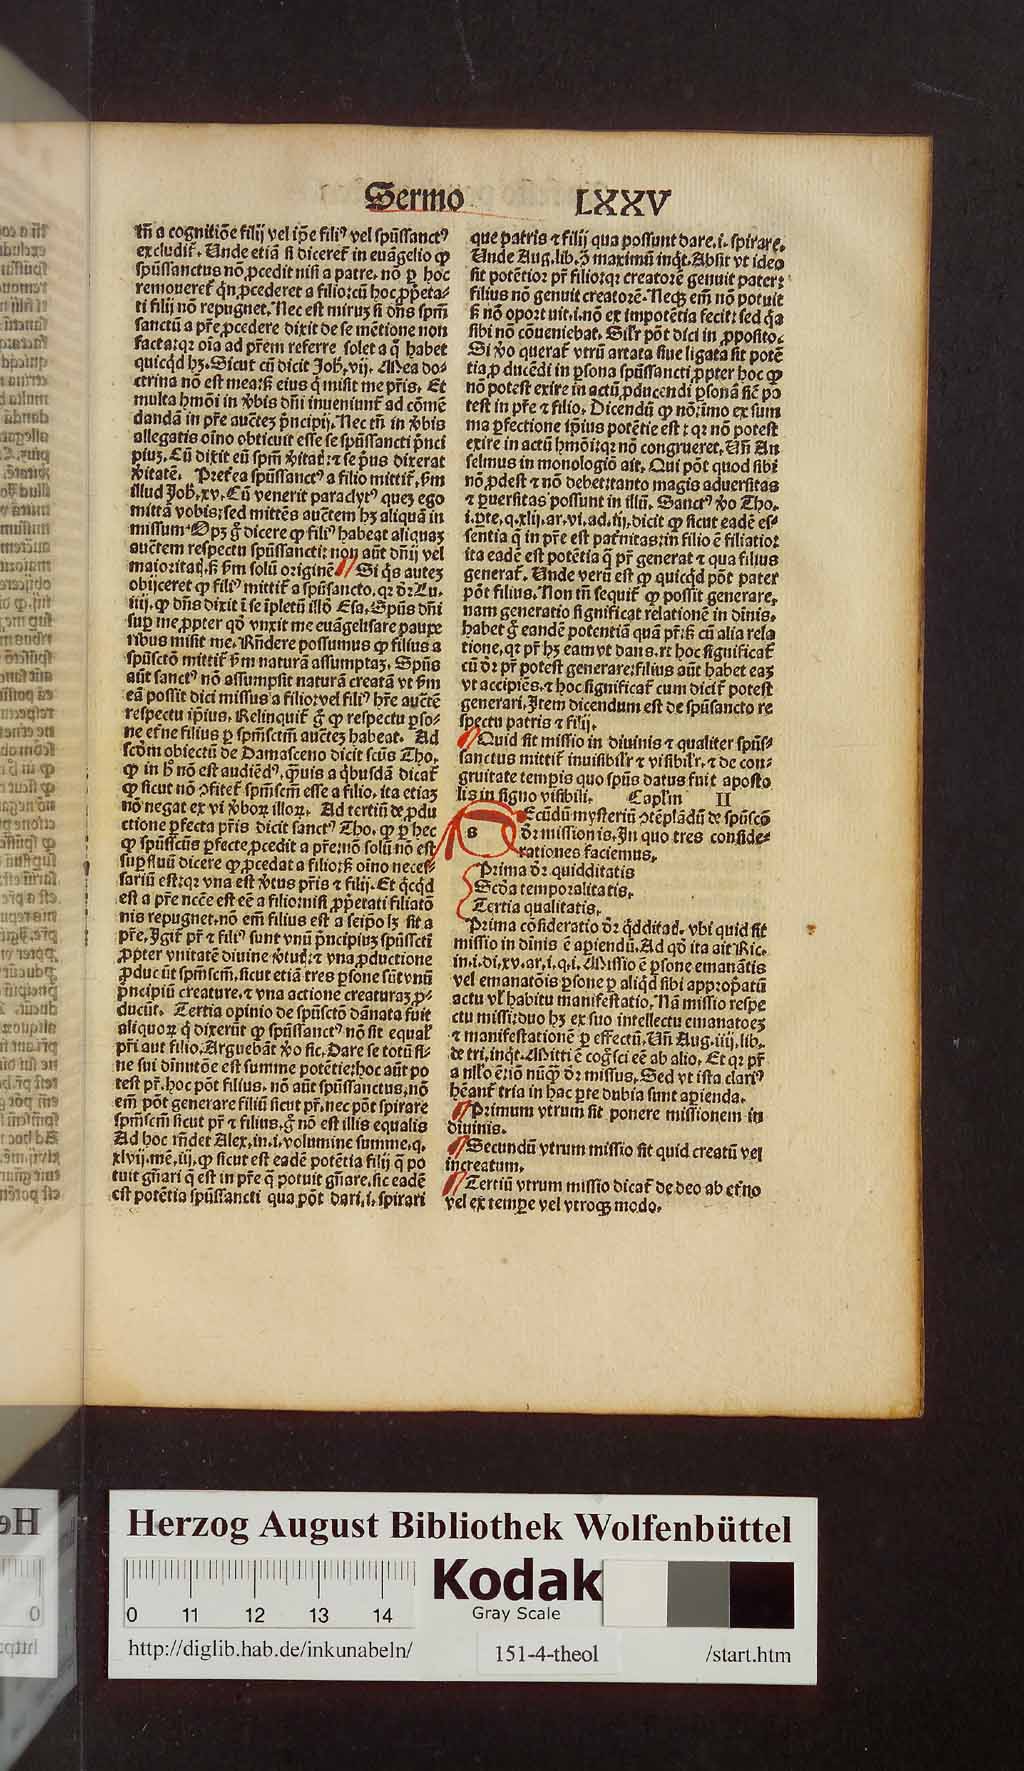 Sermo LXXV
tn̄ a cognitiōe filij vel ip̄e filiꝰ vel spūssanctꝰ
excludit᷑. Unde etiā si diceret᷑ in euāgelio ꝙ
spūssanctus nō ꝓcedit nisi a patre. nō ꝑ hoc
remoueret᷑ qn̄ ꝓcederet a filio: cū hoc ꝓp̄eta-
ti filij nō repugnet. Nec est miruʒ si dn̄s spm̄
sanctū a pr̄e ꝓcedere dixit de se mētione non
facta: qꝛ oīa ad pr̄em referre solet a q̊ habet
quicqd hʒ. Sicut cū dicit Joh̄. vij. Mea do-
ctrina nō est mea: sʒ eius q̇ misit me pr̄is. Et
multa hm̄oi in v̄bis dn̄i inueniunt᷑ ad cōmē
dandā in pr̄e auctēʒ p̄ncipij. Nec tn̄ in v̄bis
allegatis oīno obticuit esse se spūssancti p̄nci
piuʒ. Cū dixit eū spm̄ v̄itat̄: ⁊ se p̄us dixerat
v̄itatē. Pret̄ea spūssanctꝰ a filio mittit᷑. ẜm
illud Joh̄. xv. Cū venerit paraclytꝰ queʒ ego
mittā vobis: sed mittēs auctēm hʒ aliquā in
missum. Opʒ g̊ dicere ꝙ filiꝰ habeat aliquaʒ
auctēm respectu spūssancti: non aūt dn̄ij vel
maioritat̄. sʒ ẜm solū originē Si q̇s auteʒ
obijceret ꝙ filiꝰ mittit᷑ a spūsancto. qꝛ dr̄. Lu.
iiij. ꝙ dn̄s dixit ī se īpletū illō Esa. Spūs dn̄i
suꝑ me ꝓpter qd̄ vnxit me euāgelisare pauꝑe
ribus misit me. Rn̄dere possumus ꝙ filius a
spūsctō mittit᷑ ẜm naturā assumptaʒ. Spūs
aūt sanctꝰ nō assumpsit naturā creatā vt ẜm
eā possit dici missus a filio: vel filiꝰ hr̄e auctē
respectu ip̄ius. Relinquit᷑ g̊ ꝙ respectu ꝑso-
ne et̄ne filius ꝑ spm̄sctm̄ auctēʒ habeat. Ad
scd̄m obiectū de Damasceno dicit sctūs Tho.
ꝙ in hͦ nō est audiēdꝰ. q̄uis a q̇busdā dicat᷑
ꝙ sicut nō ꝯfitet᷑ spm̄scm̄ esse a filio. ita etiaʒ
nō negat ex vi v̄boꝝ illoꝝ. Ad tertiū de ꝓdu
ctione ꝑfecta pr̄is dicit sanctꝰ Tho. ꝙ ꝑ hec
ꝙ spūscūs ꝑfecte ꝓcedit a pr̄e: nō solū nō est
suꝑfluū dicere ꝙ ꝓcedat a filio: sʒ oīno neces-
sariū est: qꝛ vna est v̄tus pr̄is ⁊ filij. Et q̇cqd
est a pr̄e necēe est eē a filio: nisi ꝓp̄etati filiatō
nis repugnet. nō em̄ filius est a seipo lʒ sit a
pr̄e. Igit᷑ pr̄ ⁊ filiꝰ sunt vnū p̄ncipiuʒ spūsscti
ꝓpter vnitatē diuine v̄tut̄: ⁊ vna ꝓductione
ꝓducūt spm̄scm̄. sicut etiā tres ꝑsone sūt vnū
p̄ncipiū creature. ⁊ vna actione creaturaʒ ꝓ-
ducūt. Tertia opinio de spūsctō dānata fuit
aliquoꝝ q̇ dixerūt ꝙ spūssanctꝰ nō sit equal̓
pr̄i aut filio. Arguebāt v̄o sic. Dare se totū fi-
ne sui dīnutōe est summe potētie: hoc aūt po
test pr̄. hoc pōt filius. nō aūt spūssanctus. nō
em̄ pōt generare filiū sicut pr̄. nec pōt spirare
spm̄scm̄ sicut pr̄ ⁊ filius. g̊ nō est illis equalis
Ad hoc rn̄det Alex. in. i. volumine summe. q.
xlvij. mē. iij. ꝙ sicut est eadē potētia filij q̄ po
tuit gn̄ari q̄ est in pr̄e q̄ potuit gn̄are. sic eadē
est potētia spūssancti qua pōt dari. i. spirari
que patris ⁊ filij qua possunt dare. i. spirare.
Unde Aug. lib. ꝯ maximū inqt̄. Absit vt ideo
sit potētior pr̄ filio: qꝛ creatorē genuit pater:
filius nō genuit creatorē. Neqʒ em̄ nō potuit
sʒ nō oportuit. i. nō ex impotētia fecit: sed q̇a
sibi nō cōueniebat. Silr̄ pōt dici in ꝓposito.
Si v̄o querat᷑ vtrū artata siue ligata sit potē
tia ꝓducēdi in ꝑsona spūssancti ꝓpter hoc ꝙ
nō potest exire in actū ꝓducendi ꝑsonā sic̄ po
test in pr̄e ⁊ filio. Dicendū ꝙ nō: imo ex sum
ma ꝑfectione ip̄ius potētie est: qꝛ nō potest
exire in actū hm̄oi: qꝛ nō congrueret. Un̄ An
selmus in monologiō ait. Qui pōt quod sibi
nō ꝓdest ⁊ nō debet: tanto magis aduersitas
⁊ ꝑuersitas possunt in illū. Sanctꝰ v̄o Tho.
i. ꝑte. q. xlij. ar. vi. ad. iij. dicit ꝙ sicut eadē es-
sentia q̄ in pr̄e est pat̄nitas: in filio ē filiatio:
ita eadē est potētia q̄ pr̄ generat ⁊ qua filius
generat᷑. Unde verū est ꝙ quicqd pōt pater
pōt filius. Non tn̄ sequit᷑ ꝙ possit generare.
nam generatio significat relationē in dīnis.
habet g̊ eandē potentiā quā pr̄: sʒ cū alia rela
tione. qꝛ pr̄ hʒ eam vt dans. et hoc significat᷑
cū dr̄ pr̄ potest generare: filius aūt habet eaʒ
vt accipiēs. ⁊ hoc significat᷑ cum dicit᷑ potest
generari. Item dicendum est de spūsancto re
spectu patris ⁊ filij.
Quid sit missio in diuinis ⁊ qualiter spūs-
sanctus mittit᷑ inuisibilr̄ ⁊ visibilr̄. ⁊ de con-
gruitate tempis quo spūs datus fuit aposto
lis in signo visibili. Caplm̄ II
s Ecūdū mysteriū ꝯtēplādū de spūscō
dr̄ missionis. In quo tres conside-
rationes faciemus.
Prima dr̄ quidditatis
Scd̄a temporalitatis.
Tertia qualitatis.
Prima cōsideratio dr̄ q̇dditat̄. vbi quid sit
missio in dīnis ē aꝑiendū. Ad qd̄ ita ait Ric.
in. i. di. xv. ar. i. q. i. Missio ē ꝑsone emanātis
vel emanatōis ꝑsone ꝑ aliqd sibi approp̄atū
actu vl̓ habitu manifestatio. Nā missio respe
ctu missi: duo hʒ ex suo intellectu emanatoeʒ
⁊ manifestationē ꝑ effectū. Un̄ Aug. iiij. lib.
de tri. inqt̄. Mitti ē cog̊sci eē ab alio. Et qꝛ pr̄
a nllo ē: iō nūq̄ dr̄ missus. Sed vt ista clariꝰ
hēant᷑ tria in hac ꝑte dubia sunt aꝑienda.
Primum vtrum sit ponere missionem in
diuinis.
Secundū vtrum missio sit quid creatū vel
increatum.
Tertiū vtrum missio dicat᷑ de deo ab et̄no
vel ex tempe vel vtroqʒ modo.
Herzog August Bibliothek Wolfenbüttel
0 11 12 13 14
Kodak
Gray Scale
http://diglib.hab.de/inkunabeln/ 151-4-theol /start.htm